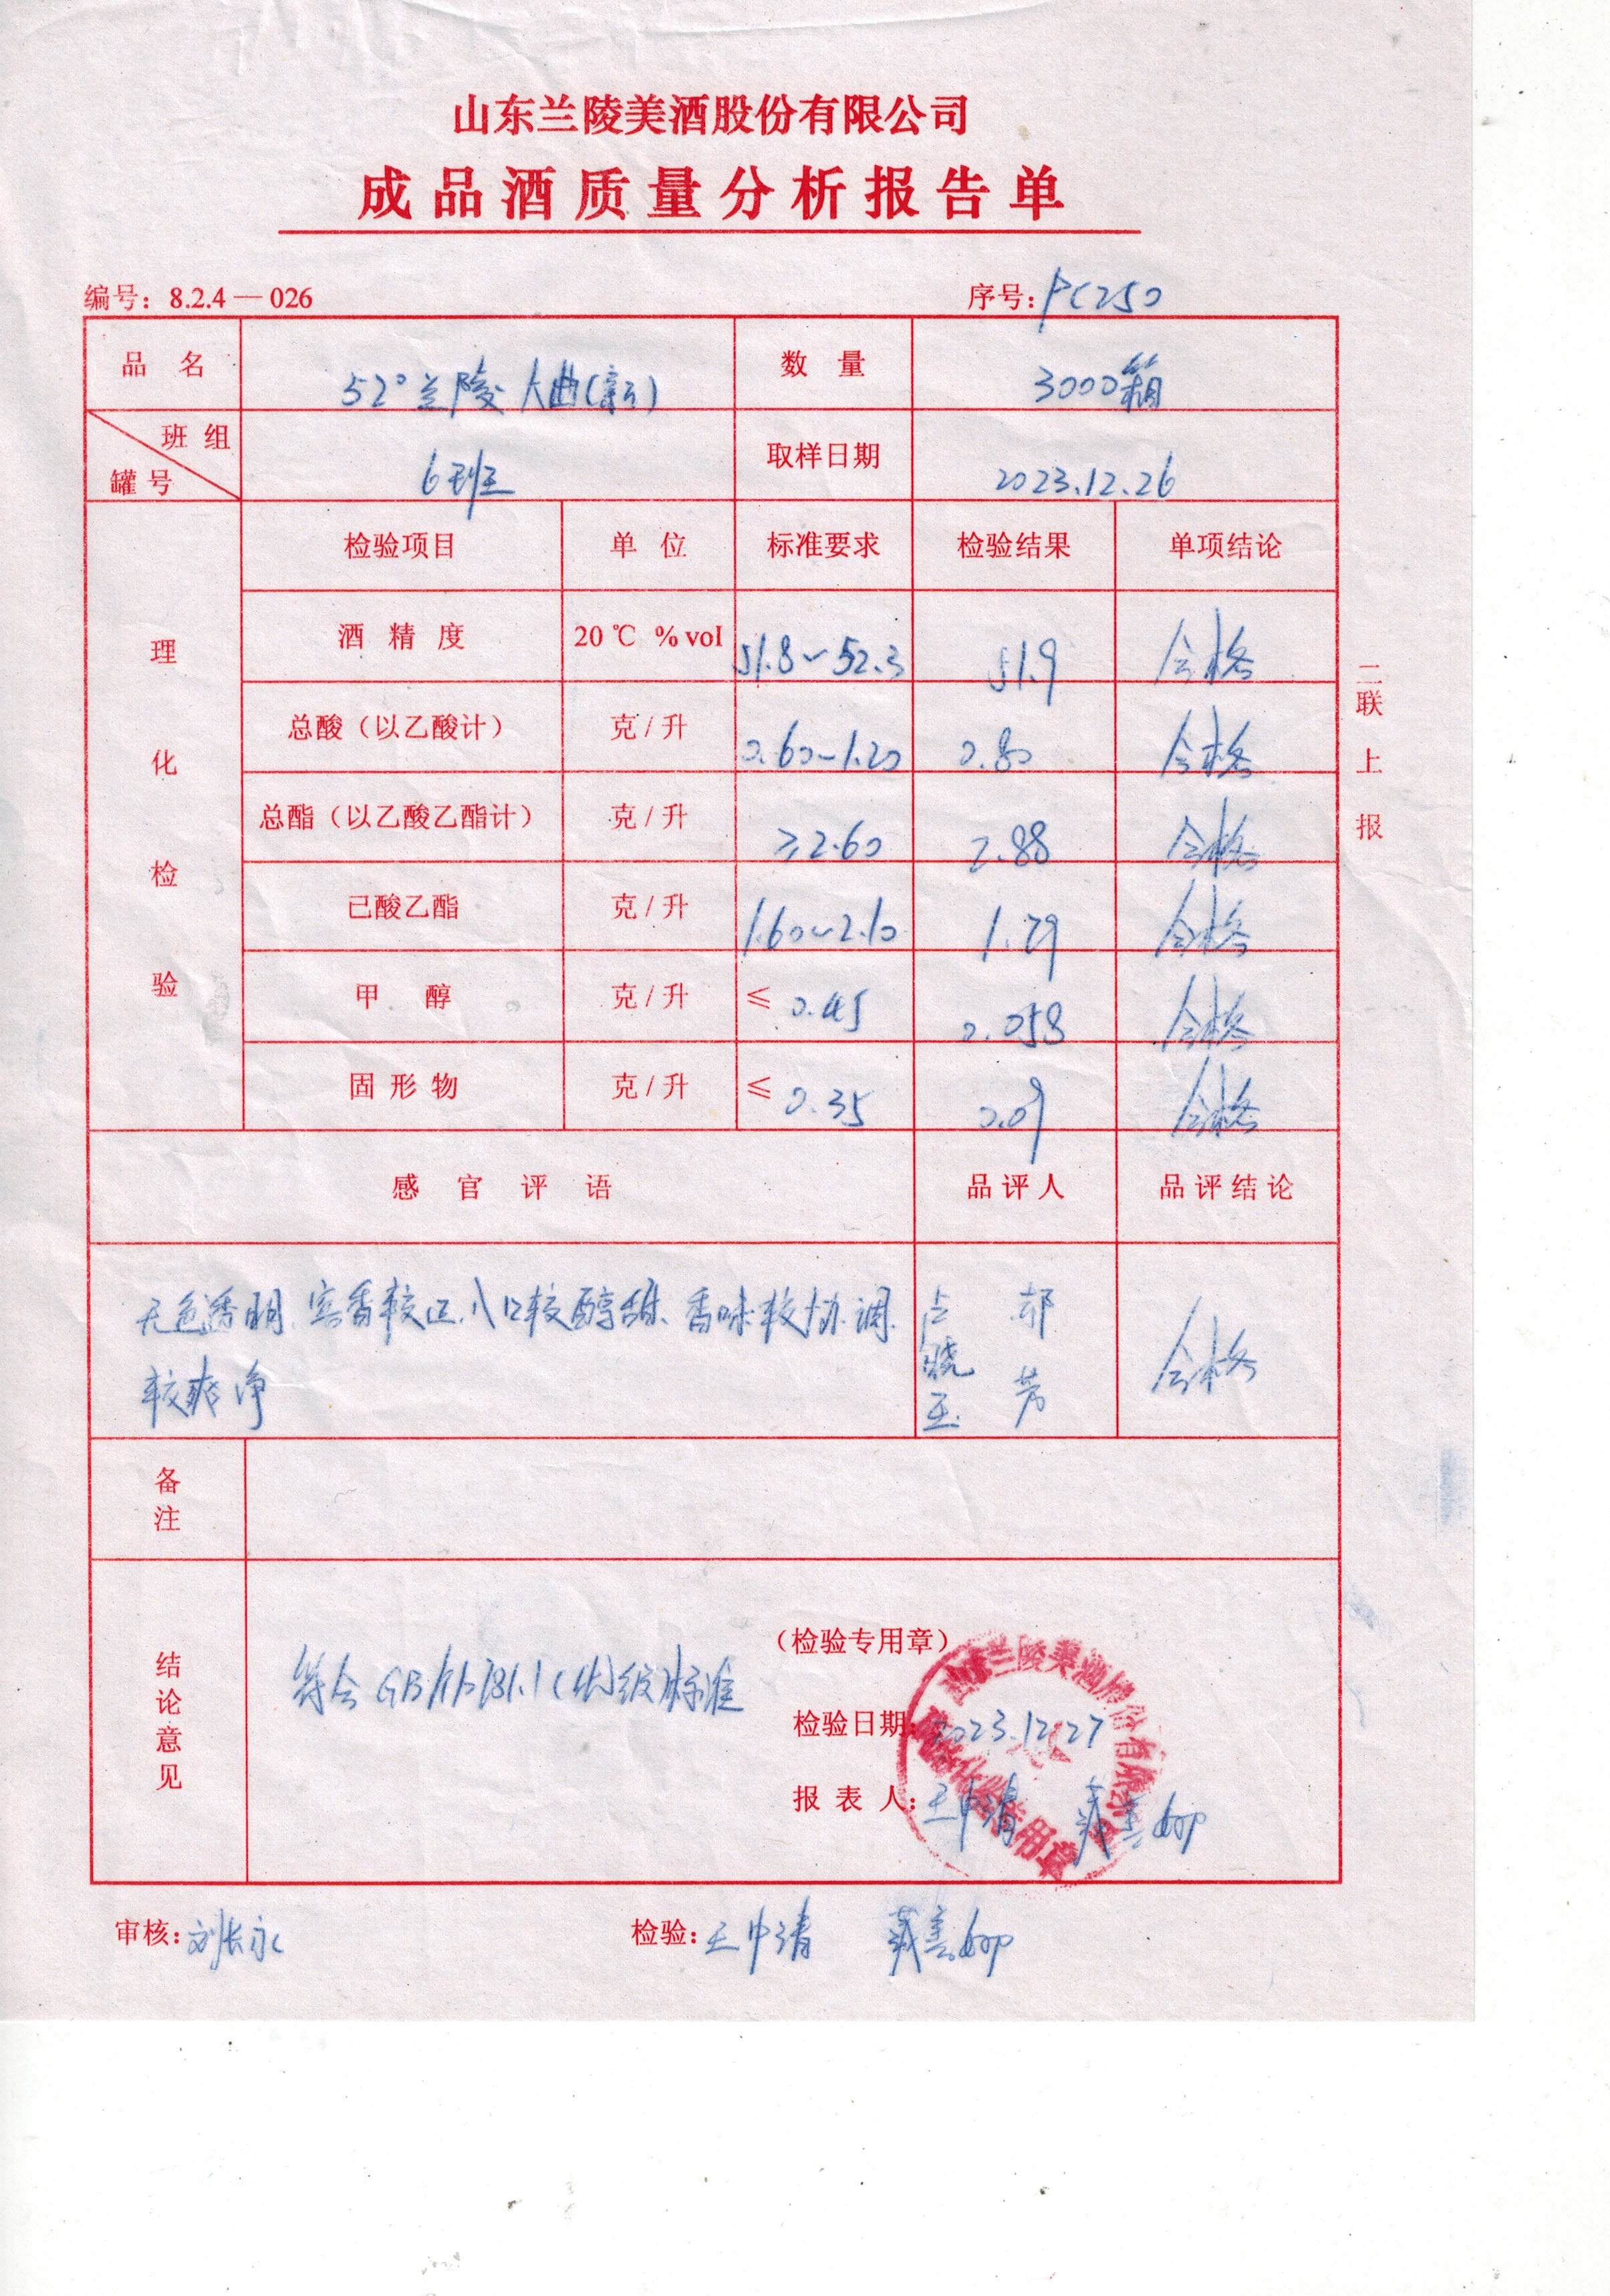 山东兰陵美酒股份有限公司
成品酒质量分析报告单
编号：8.2.4—026 序号：PC250
品名 52°兰陵大曲 数量 3000箱
班组 罐号 6班 取样日期 2023.12.26
理化检验
检验项目 单位 标准要求 检验结果 单项结论
酒精度 20℃ %vol 51.8~52.3 51.9 合格
总酸（以乙酸计） 克/升 0.60~1.20 0.80 合格
总酯（以乙酸乙酯计） 克/升 ≥2.60 2.88 合格
已酸乙酯 克/升 1.60~2.10 1.79 合格
甲醇 克/升 ≤0.45 0.058 合格
固形物 克/升 ≤0.35 0.09 合格
二联上报
感官评语 品评人 品评结论
无色透明、窖香较正、入口较醇甜、香味较协调、
较爽净
卢晓玉 郝芳 合格
备注
结论意见
符合GB/T10781.1(优)级标准
（检验专用章）
检验日期：2023.12.27
报表人：王中清
兰陵美酒股份有限公司
专用章
审核：刘长永 检验：王中清